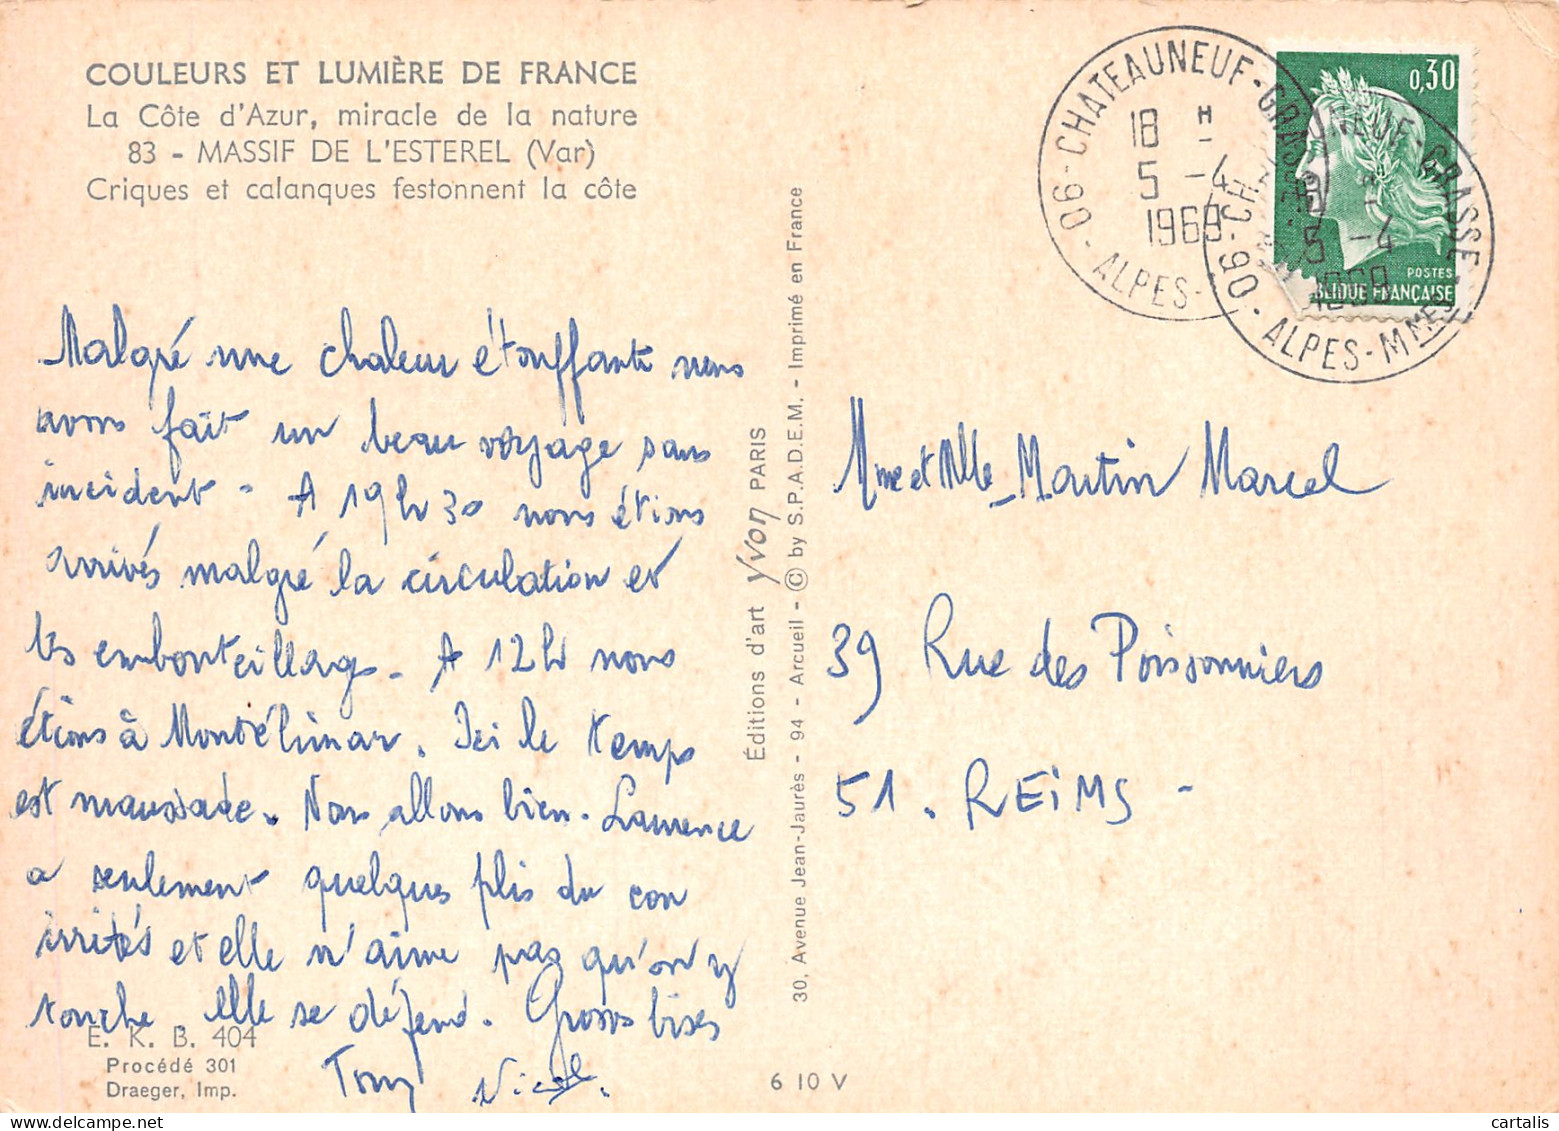 COULEURS ET LUMIÈRE DE FRANCE
La Côte d'Azur, miracle de la nature
83 - MASSIF DE L'ESTEREL (Var)
Criques et calanques festonnent la côte
Malgré une chaleur étouffante nous
avons fait un beau voyage sans
incident - A 19h30 nous étions
arrivés malgré la circulation et
les embouteillages. A 12h nous
étions à Montélimar. Ici le temps
est maussade. Nous allons bien. Laurence
a seulement quelques plis du cou
irrités et elle n'aime pas qu'on y
touche elle se défend. Grosses bises
Tony Nicole.
E. K. B. 404
Procédé 301
Draeger, Imp.
6 10 V
Éditions d'art Yvon PARIS
30, Avenue Jean-Jaurès - 94 - Arcueil - © by S.P.A.D.E.M. - Imprimé en France
06 - CHATEAUNEUF - GRASSE
18 H
5 - 4
1969
ALPES -
06 - CHATEAUNEUF - GRASSE
5 - 4
1969
ALPES - MMES
0,30
POSTES
BLIQUE FRANÇAISE
Mme et Mlle Martin Marcel
39 Rue des Poissonniers
51. REiMS -
cartalis